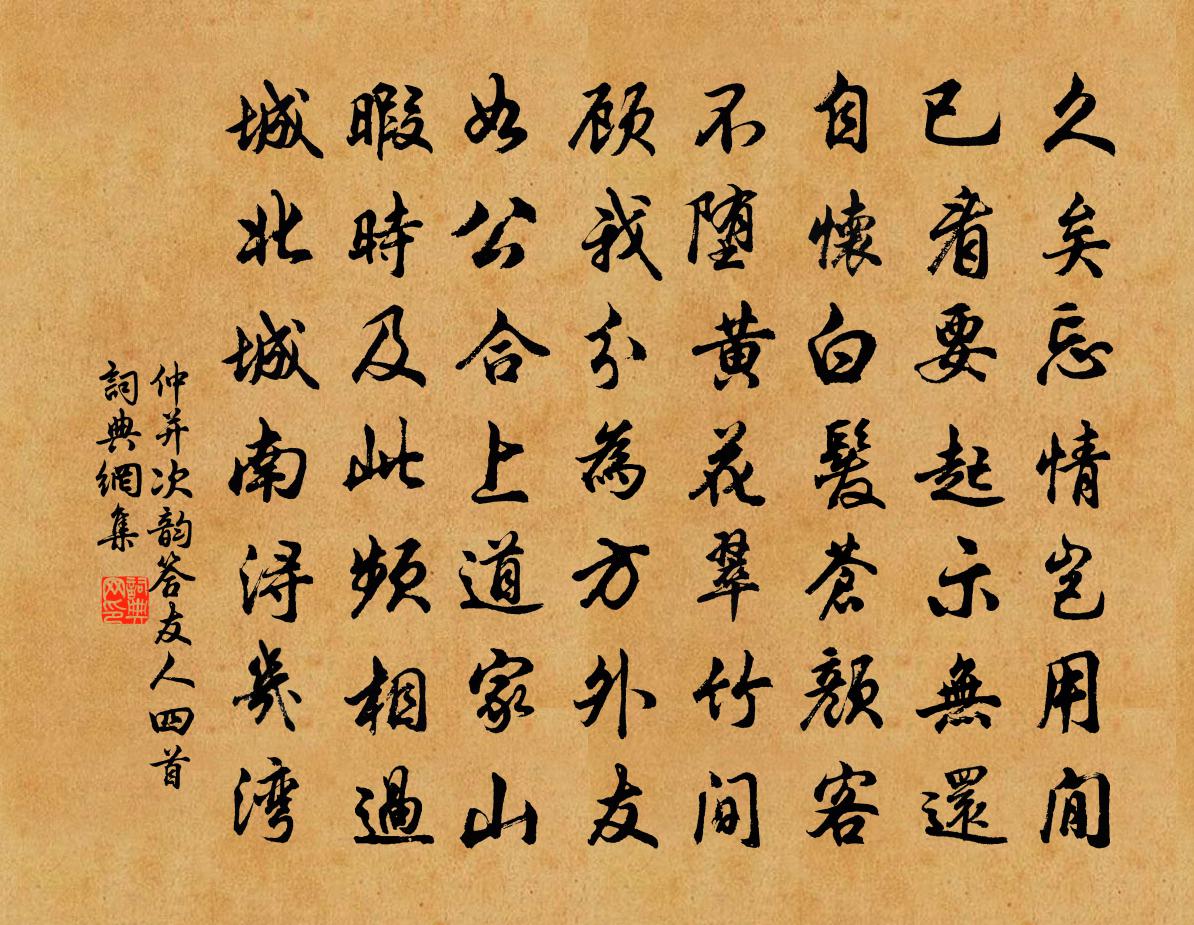 久矣忘情岂用閒
已看要起示無還
自懷白髮蒼顏客
不堕黄花翠竹间
顾我分為方外友
如公合上道家山
暇時及此頻相過
城北城南浔幾湾
仲并次韵答友人四首
詞典網集
詞典网印